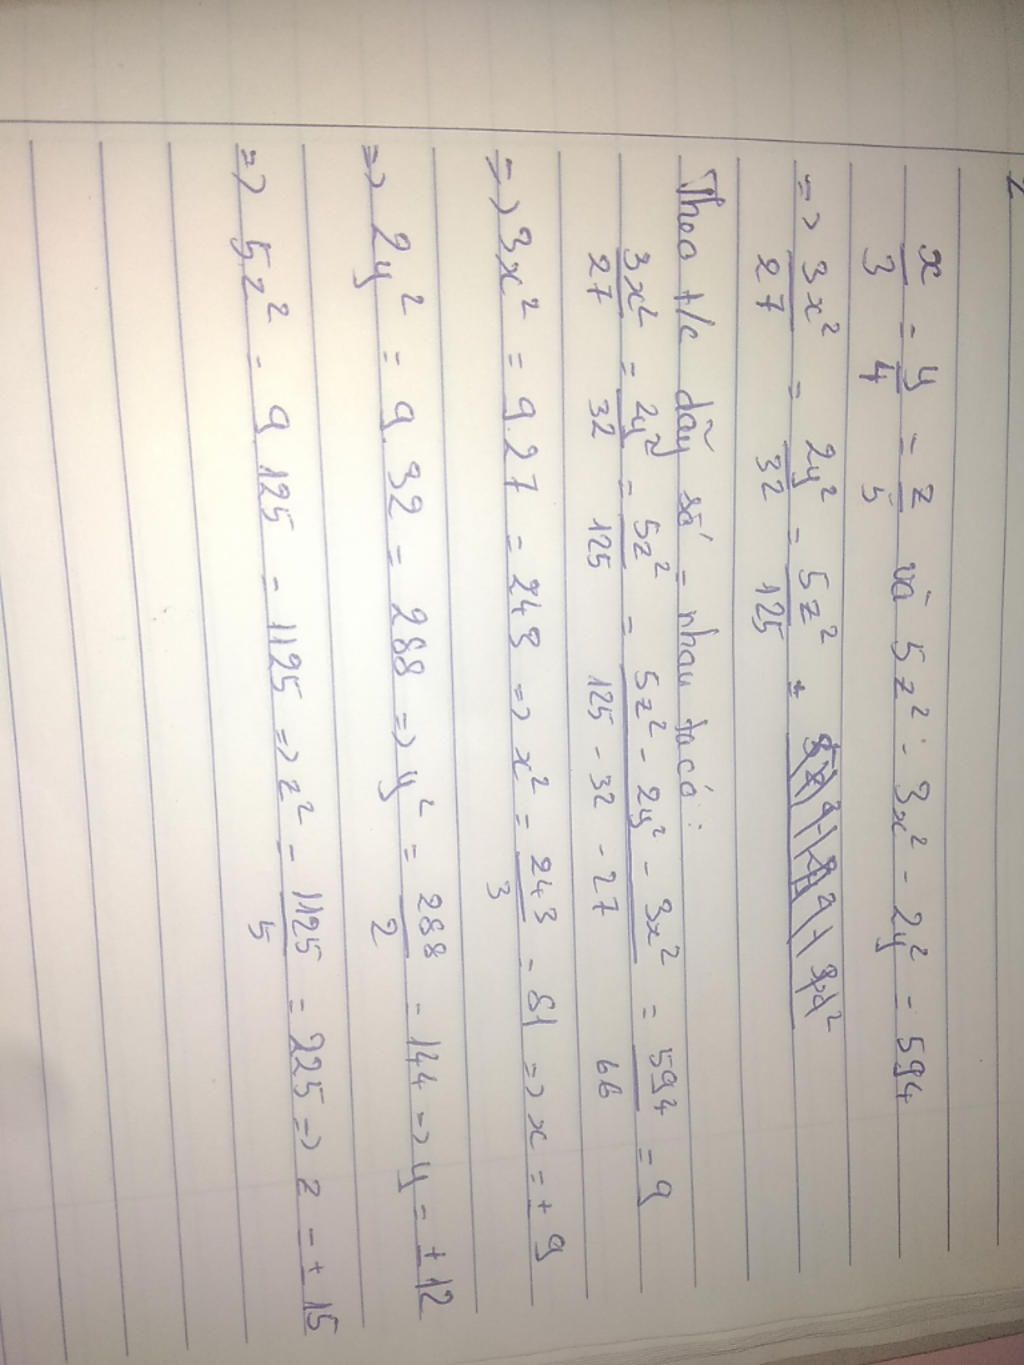 x/3 = y/4 = z/5 và 5z² - 3x² - 2y² = 594
=> 3x²/27 = 2y²/32 = 5z²/125 =
Theo t/c dãy số = nhau ta có:
3x²/27 = 2y²/32 = 5z²/125 = (5z² - 2y² - 3x²)/(125 - 32 - 27) = 594/66 = 9
=> 3x² = 9.27 = 243 => x² = 243/3 = 81 => x = ± 9
=> 2y² = 9.32 = 288 => y² = 288/2 = 144 => y = ± 12
=> 5z² = 9.125 = 1125 => z² = 1125/5 = 225 => z = ± 15